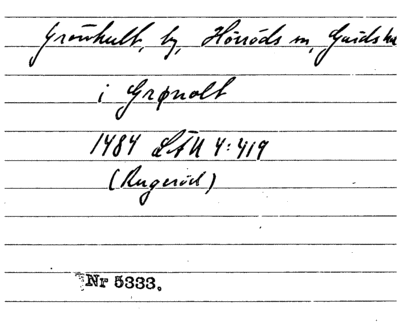 Grönhult, by, Hörröds sn, Gärds hd
i Grønolt
1484 LÅU 4:419
(Rugeröd)
Nr 5333.